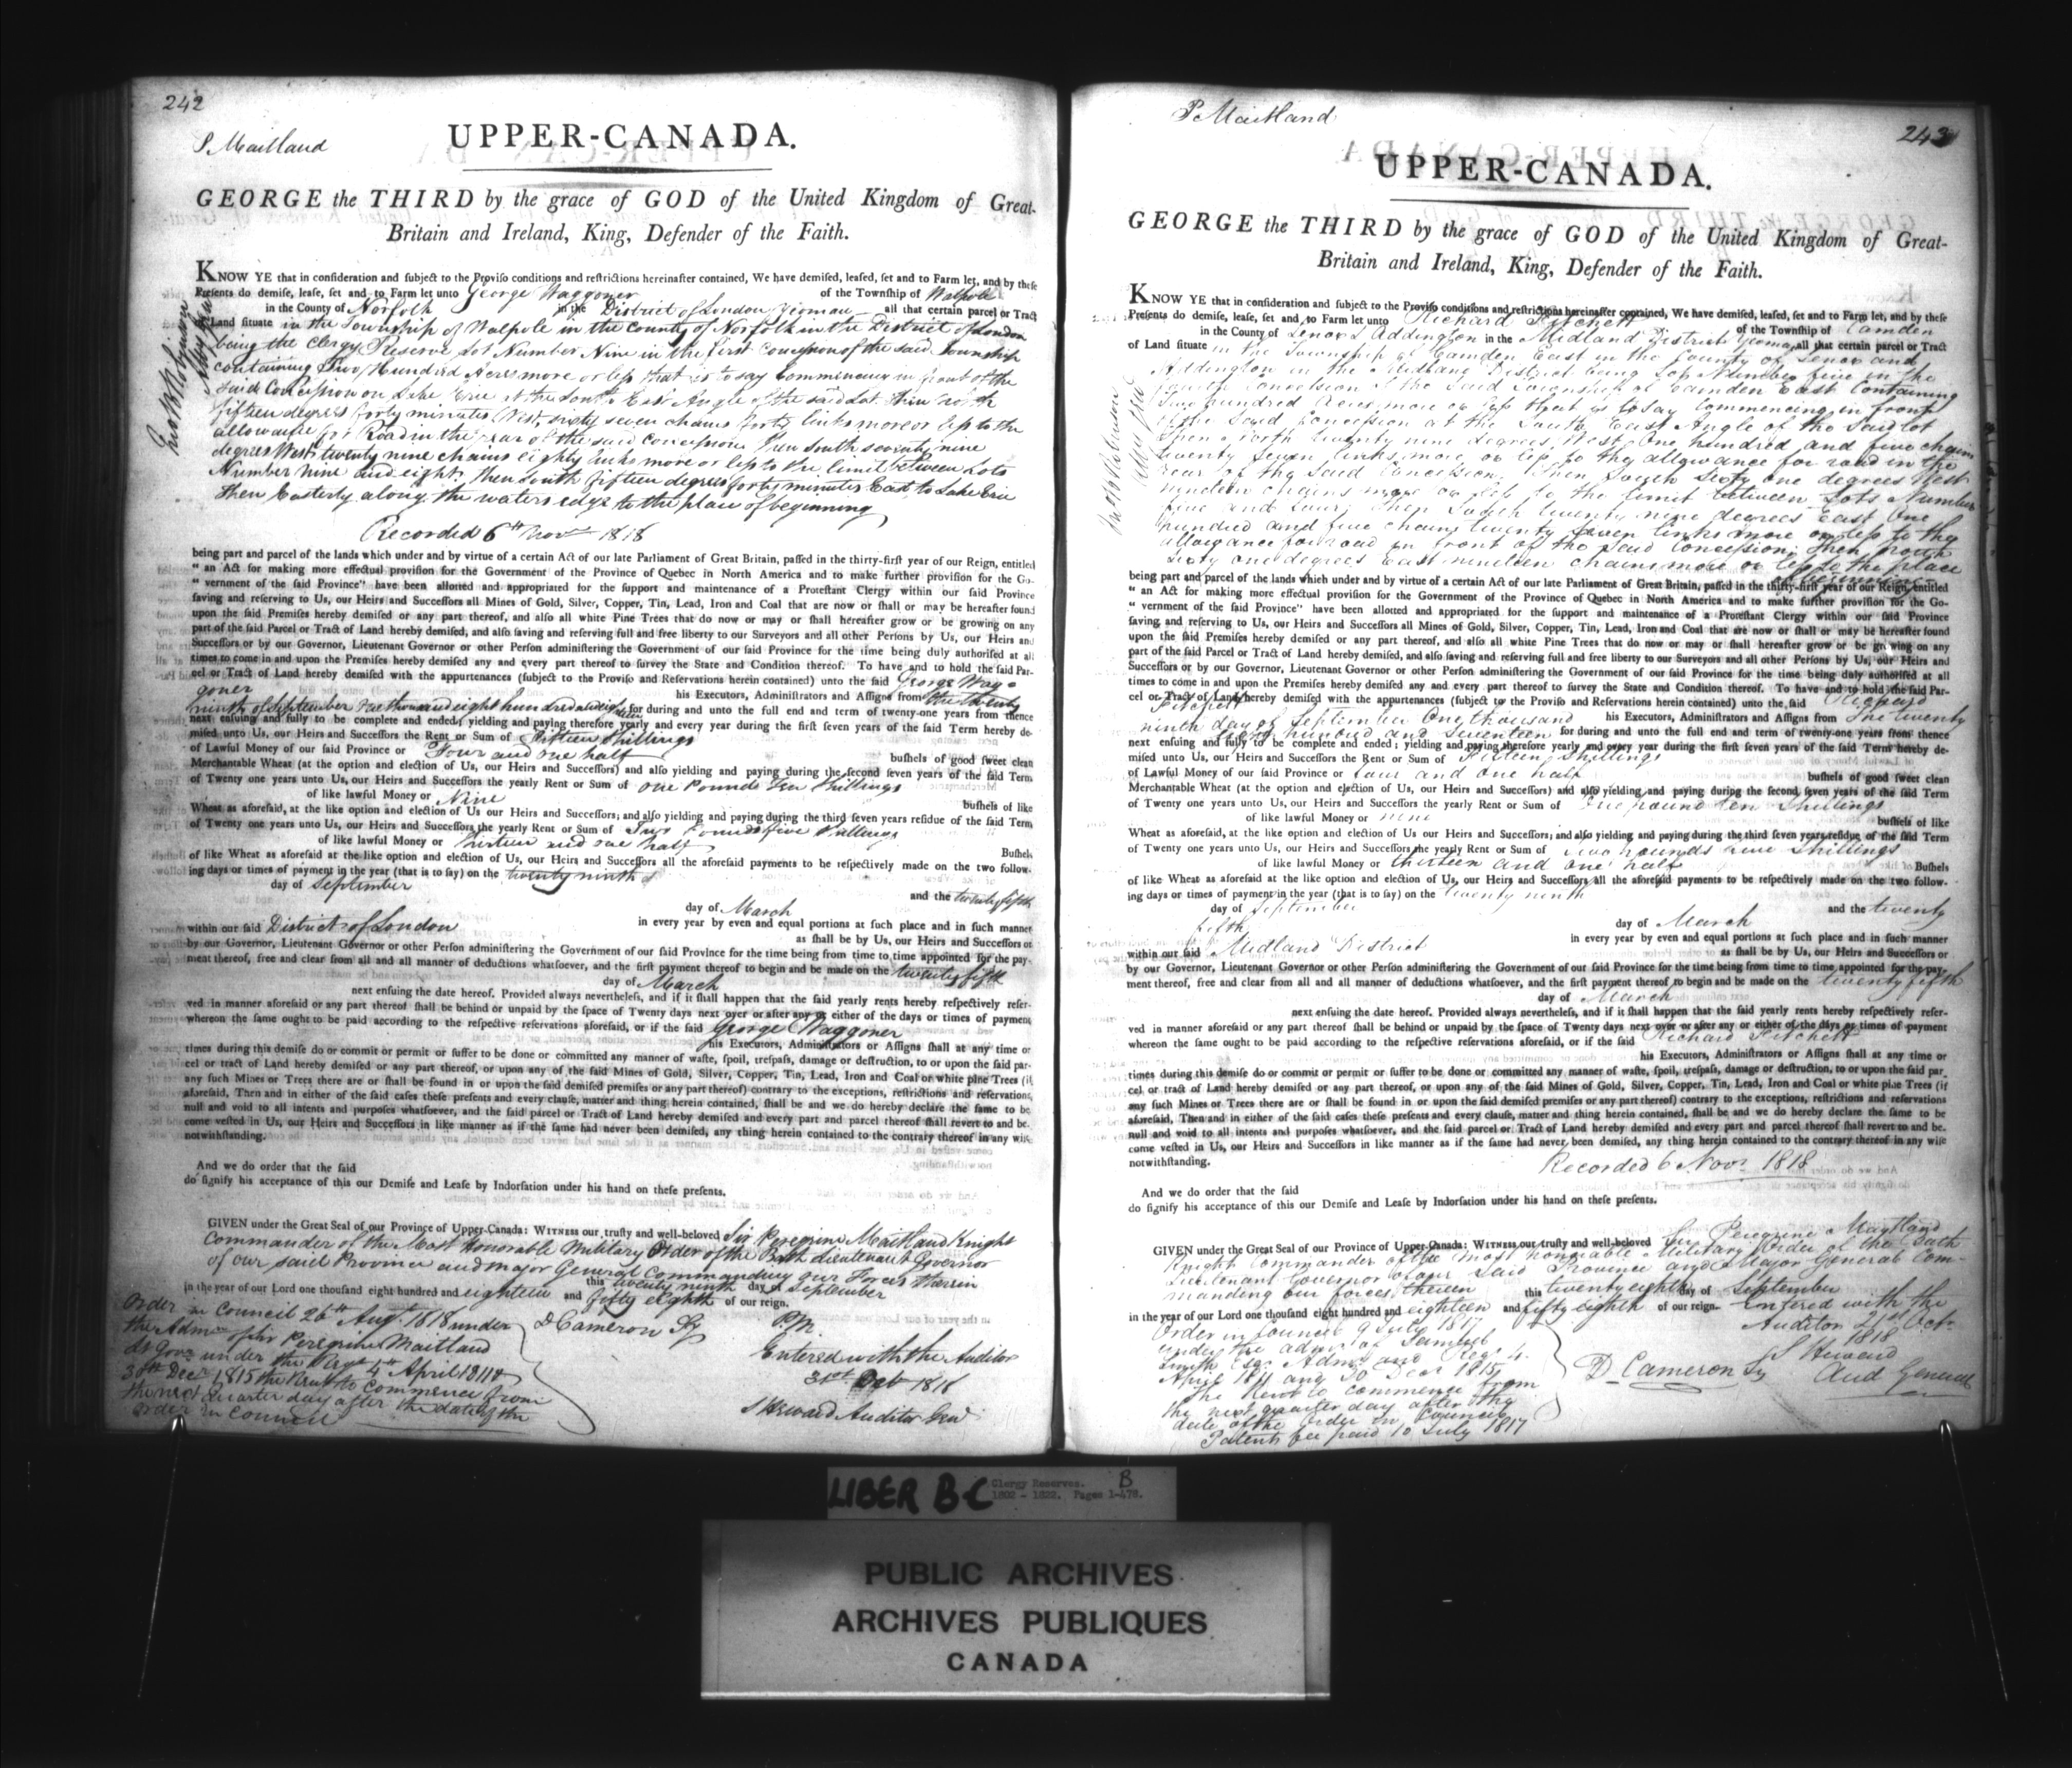 242
P. Maitland
UPPER-CANADA.
GEORGE the THIRD by the grace of GOD of the United Kingdom of Great-
Britain and Ireland, King, Defender of the Faith.
KNOW YE that in consideration and subject to the Proviso conditions and restrictions hereinafter contained, We have demised, leased, set and to Farm let, and by these
Presents do demise, lease, set and to Farm let unto George Waggoner of the Township of Walpole
in the County of Norfolk in the District of London Yeoman all that certain parcel or Tract
of Land situate in the Township of Walpole in the County of Norfolk in the District of London
being the Clergy Reserve Lot Number Nine in the first Concession of the said Township
containing Two Hundred Acres more or less that is to say Commencing in front of the
said Concession on Lake Erie at the South East Angle of the said Lot then North
fifteen degrees forty minutes West, sixty seven chains forty links more or less to the
allowance for Road in the rear of the said Concession Then South seventy nine
degrees West twenty nine chains eighty links more or less to the limit between Lots
Number nine and eight. then South fifteen degrees forty minutes East to Lake Erie
then Easterly along the waters edge to the place of beginning
Recorded 6th Novr 1818
being part and parcel of the lands which under and by virtue of a certain Act of our late Parliament of Great Britain, passed in the thirty-first year of our Reign, entitled
" an Act for making more effectual provision for the Government of the Province of Quebec in North America and to make further provision for the Go-
" vernment of the said Province" have been allotted and appropriated for the support and maintenance of a Protestant Clergy within our said Province
saving and reserving to Us, our Heirs and Successors all Mines of Gold, Silver, Copper, Tin, Lead, Iron and Coal that are now or shall or may be hereafter found
upon the said Premises hereby demised or any part thereof, and also all white Pine Trees that do now or may or shall hereafter grow or be growing on any
part of the said Parcel or Tract of Land hereby demised, and also saving and reserving full and free liberty to our Surveyors and all other Persons by Us, our Heirs and
Successors or by our Governor, Lieutenant Governor or other Person administering the Government of our said Province for the time being duly authorised at all
times to come in and upon the Premises hereby demised any and every part thereof to survey the State and Condition thereof. To have and to hold the said Par-
cel or Tract of Land hereby demised with the appurtenances (subject to the Proviso and Reservations herein contained) unto the said George Wag-
goner his Executors, Administrators and Assigns from the twenty
ninth of September One thousand eight hundred and eighteen for during and unto the full end and term of twenty-one years from thence
next ensuing and fully to be complete and ended; yielding and paying therefore yearly and every year during the first seven years of the said Term hereby de-
mised unto Us, our Heirs and Successors the Rent or Sum of Fifteen Shillings
of Lawful Money of our said Province or Four and one half bushels of good sweet clean
Merchantable Wheat (at the option and election of Us, our Heirs and Successors) and also yielding and paying during the second seven years of the said Term
of Twenty one years unto Us, our Heirs and Successors the yearly Rent or Sum of One Pound Ten Shillings
of like lawful Money or Nine bushels of like
Wheat as aforesaid, at the like option and election of Us our Heirs and Successors; and also yielding and paying during the third seven years residue of the said Term
of Twenty one years unto Us, our Heirs and Successors the yearly Rent or Sum of Two Pounds five Shillings
of like lawful Money or thirteen and one half Bushels
of like Wheat as aforesaid at the like option and election of Us, our Heirs and Successors all the aforesaid payments to be respectively made on the two follow-
ing days or times of payment in the year (that is to say) on the twenty ninth
day of September and the twenty fifth
day of March
within our said District of London in every year by even and equal portions at such place and in such manner
as shall be by Us, our Heirs and Successors or
by our Governor, Lieutenant Governor or other Person administering the Government of our said Province for the time being from time to time appointed for the pay-
ment thereof, free and clear from all and all manner of deductions whatsoever, and the first payment thereof to begin and be made on the twenty fifth
day of March
next ensuing the date hereof. Provided always nevertheless, and if it shall happen that the said yearly rents hereby respectively reser-
ved in manner aforesaid or any part thereof shall be behind or unpaid by the space of Twenty days next over or after any or either of the days or times of payment
whereon the same ought to be paid according to the respective reservations aforesaid, or if the said George Waggoner
his Executors, Administrators or Assigns shall at any time or
times during this demise do or commit or permit or suffer to be done or committed any manner of waste, spoil, trespass, damage or destruction, to or upon the said par-
cel or tract of Land hereby demised or any part thereof, or upon any of the said Mines of Gold, Silver, Copper, Tin, Lead, Iron and Coal or white pine Trees (if
any such Mines or Trees there are or shall be found in or upon the said demised premises or any part thereof) contrary to the exceptions, restrictions and reservations
aforesaid, Then and in either of the said cases these presents and every clause, matter and thing herein contained, shall be and we do hereby declare the same to be
null and void to all intents and purposes whatsoever, and the said parcel or Tract of Land hereby demised and every part and parcel thereof shall revert to and be-
come vested in Us, our Heirs and Successors in like manner as if the same had never been demised, any thing herein contained to the contrary thereof in any wise
notwithstanding.
And we do order that the said
do signify his acceptance of this our Demise and Lease by Indorsation under his hand on these presents.
GIVEN under the Great Seal of our Province of Upper-Canada: WITNESS our trusty and well-beloved Sir Peregrine Maitland Knight
Commander of the Most Honorable Military Order of the Bath Lieutenant Governor
of our said Province and Major General Commanding our Forces therein
this twenty ninth day of September
in the year of our Lord one thousand eight hundred and eighteen and fifty eighth of our reign.
Order in Council 26th Augt 1818 under
the Admn of Sir Peregrine Maitland
Lt Govr under the Regs 4th April 1811 &
30th Decr 1815 the Rent to Commence from
the next Quarter day after the date of the
Order in Council
D Cameron Sy
P.M.
Entered with the Auditor
31st Octr 1818
S Heward Auditor Genl
P Maitland
243
UPPER-CANADA.
GEORGE the THIRD by the grace of GOD of the United Kingdom of Great-
Britain and Ireland, King, Defender of the Faith.
KNOW YE that in consideration and subject to the Proviso conditions and restrictions hereinafter contained, We have demised, leased, set and to Farm let, and by these
Presents do demise, lease, set and to Farm let unto Richard Fitchett of the Township of Camden
in the County of Lenox & Addington in the Midland District Yeoman all that certain parcel or Tract
of Land situate in the Township of Camden East in the County of Lenox and
Addington in the Midland District being Lot Number five in the
fourth Concession of the said Township of Camden East Containing
Two hundred Acres more or less that is to say Commencing in front
of the said Concession at the South East Angle of the said Lot
then North twenty nine degrees West One hundred and five chains
twenty seven links more or less to the allowance for road in the
rear of the said Concession. then South Sixty one degrees West
nineteen chains more or less to the limit between Lots Number
five and four; then South twenty nine degrees East One
hundred and five chains twenty seven links more or less to the
allowance for road in front of the said Concession; then North
Sixty one degrees East nineteen chains more or less to the place
of beginning
being part and parcel of the lands which under and by virtue of a certain Act of our late Parliament of Great Britain, passed in the thirty-first year of our Reign, entitled
" an Act for making more effectual provision for the Government of the Province of Quebec in North America and to make further provision for the Go-
" vernment of the said Province" have been allotted and appropriated for the support and maintenance of a Protestant Clergy within our said Province
saving and reserving to Us, our Heirs and Successors all Mines of Gold, Silver, Copper, Tin, Lead, Iron and Coal that are now or shall or may be hereafter found
upon the said Premises hereby demised or any part thereof, and also all white Pine Trees that do now or may or shall hereafter grow or be growing on any
part of the said Parcel or Tract of Land hereby demised, and also saving and reserving full and free liberty to our Surveyors and all other Persons by Us, our Heirs and
Successors or by our Governor, Lieutenant Governor or other Person administering the Government of our said Province for the time being duly authorised at all
times to come in and upon the Premises hereby demised any and every part thereof to survey the State and Condition thereof. To have and to hold the said Par-
cel or Tract of Land hereby demised with the appurtenances (subject to the Proviso and Reservations herein contained) unto the said Richard
Fitchett his Executors, Administrators and Assigns from the twenty
ninth day of September One thousand
Eight hundred and seventeen for during and unto the full end and term of twenty-one years from thence
next ensuing and fully to be complete and ended; yielding and paying therefore yearly and every year during the first seven years of the said Term hereby de-
mised unto Us, our Heirs and Successors the Rent or Sum of Fifteen Shillings
of Lawful Money of our said Province or four and one half bushels of good sweet clean
Merchantable Wheat (at the option and election of Us, our Heirs and Successors) and also yielding and paying during the second seven years of the said Term
of Twenty one years unto Us, our Heirs and Successors the yearly Rent or Sum of One pound ten Shillings
of like lawful Money or nine bushels of like
Wheat as aforesaid, at the like option and election of Us our Heirs and Successors; and also yielding and paying during the third seven years residue of the said Term
of Twenty one years unto Us, our Heirs and Successors the yearly Rent or Sum of two pounds five Shillings
of like lawful Money or thirteen and one half Bushels
of like Wheat as aforesaid at the like option and election of Us, our Heirs and Successors all the aforesaid payments to be respectively made on the two follow-
ing days or times of payment in the year (that is to say) on the twenty ninth
day of September and the twenty
fifth day of March
within our said Midland District in every year by even and equal portions at such place and in such manner
as shall be by Us, our Heirs and Successors or
by our Governor, Lieutenant Governor or other Person administering the Government of our said Province for the time being from time to time appointed for the pay-
ment thereof, free and clear from all and all manner of deductions whatsoever, and the first payment thereof to begin and be made on the twenty fifth
day of March
next ensuing the date hereof. Provided always nevertheless, and if it shall happen that the said yearly rents hereby respectively reser-
ved in manner aforesaid or any part thereof shall be behind or unpaid by the space of Twenty days next over or after any or either of the days or times of payment
whereon the same ought to be paid according to the respective reservations aforesaid, or if the said Richard Fitchett
his Executors, Administrators or Assigns shall at any time or
times during this demise do or commit or permit or suffer to be done or committed any manner of waste, spoil, trespass, damage or destruction, to or upon the said par-
cel or tract of Land hereby demised or any part thereof, or upon any of the said Mines of Gold, Silver, Copper, Tin, Lead, Iron and Coal or white pine Trees (if
any such Mines or Trees there are or shall be found in or upon the said demised premises or any part thereof) contrary to the exceptions, restrictions and reservations
aforesaid, Then and in either of the said cases these presents and every clause, matter and thing herein contained, shall be and we do hereby declare the same to be
null and void to all intents and purposes whatsoever, and the said parcel or Tract of Land hereby demised and every part and parcel thereof shall revert to and be-
come vested in Us, our Heirs and Successors in like manner as if the same had never been demised, any thing herein contained to the contrary thereof in any wise
notwithstanding.
Recorded 6 Novr 1818
And we do order that the said
do signify his acceptance of this our Demise and Lease by Indorsation under his hand on these presents.
GIVEN under the Great Seal of our Province of Upper-Canada: WITNESS our trusty and well-beloved Sir Peregrine Maitland
Knight Commander of the Most honorable Military Order of the Bath
Lieutenant Governor of our said Province and Major General Com-
manding our forces therein this twenty eighth day of September
in the year of our Lord one thousand eight hundred and eighteen and fifty eighth of our reign.
Order in Council 9 July 1817
under the admn of Samuel
Smith Esqr Admr and Regs 4
April 1811 and 30 Decr 1815
The Rent to commence from
the next quarter day after the
date of the Order in Council
Patent fee paid 10 July 1817
D Cameron Sy
Entered with the
Auditor 21st Octr
1818
S Heward
Aud General
LIBER B-C
Clergy Reserves. B
1802 - 1822. Pages 1-478.
PUBLIC ARCHIVES
ARCHIVES PUBLIQUES
CANADA